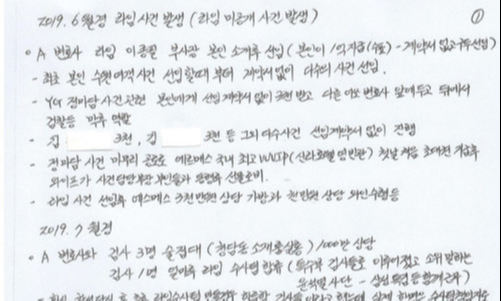 2019. 6월경 라임사건 발생 (라임 미공개 사건 발생) ①
• A 변호사 라임 이종필 부사장 본인 소개후 선임 (본인이 1억 지급(수표) - 계약서 없고 구두선임)
- 최초 본인 수원여객사건 선임할때부터 계약서없이 다수의 사건 선임.
- YG 정마담 사건관련 본인에게 선임계약서 없이 천 받고 다른 여쏘 변호사 앞에두고 뒤에서
검찰등 막후 역할
- 김 3천, 김 3천 등 그외다수사건 선임계약서 없이 진행
- 정마담 사건 마무리 에르메스 국내 최고 VVIP (신라호텔 영빈관) 첫날 초대권 지급후
와이프가 사건담당 부인들과 선물로비.
- 라임 사건 선임후 에르메스 3천만원 상당 가방과 천만원 상당 와인수령등
2019. 7월경
• A 변호사와 검사 3명 술접대 (청담동 소재룸살롱) 1000만 상당
검사 1명 얼마후 라임 수사팀 합류 (특수부 검사들로 이루어졌고 소위 말하는
윤석열 사단 - 삼성특검등 함께근무)